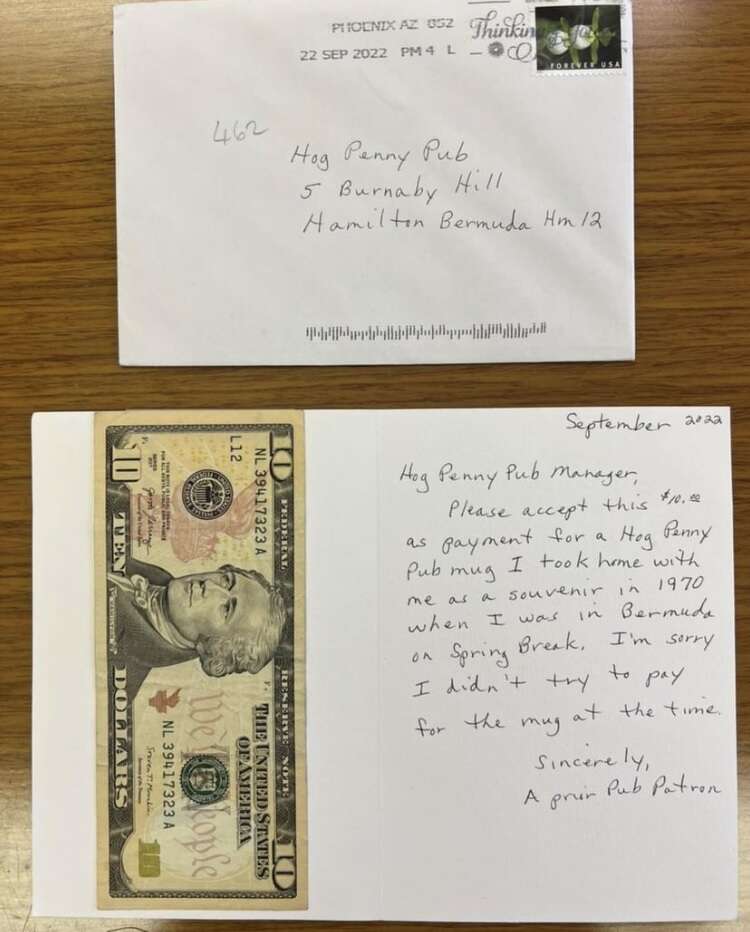 PHOENIX AZ 852
22 SEP 2022 PM 4 L
Thinking
FOREVER USA
462
Hog Penny Pub
5 Burnaby Hill
Hamilton Bermuda Hm 12
September 2022
Hog Penny Pub Manager,
Please accept this $10.00
as payment for a Hog Penny
Pub mug I took home with
me as a souvenir in 1970
when I was in Bermuda
on Spring Break. I'm sorry
I didn't try to pay
for the mug at the time.
Sincerely,
A prior Pub Patron
10
FEDERAL RESERVE NOTE
THE UNITED STATES
OF AMERICA
10
NL 39417323 A
L12
We the People
NL 39417323 A
10
TEN DOLLARS
10